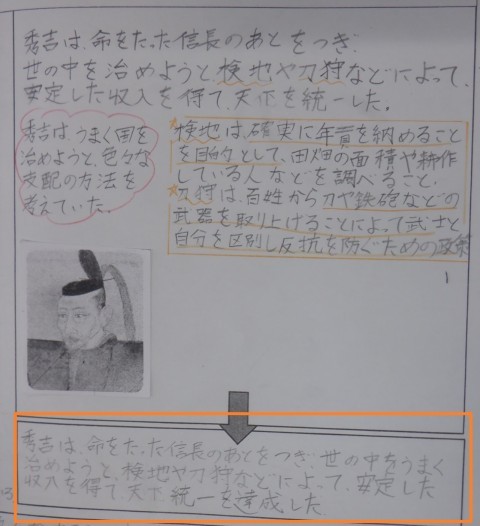 秀吉は、命をたった信長のあとをつぎ、
世の中を治めようと、検地や刀狩などによって、
安定した収入を得て、天下を統一した。
秀吉はうまく国を
治めようと、色々な
支配の方法を
考えていた。
検地は、確実に年貢を納めること
を目的として、田畑の面積や耕作
している人などを調べること。
刀狩は、百姓から刀や鉄砲などの
武器を取り上げることによって武士と
自分を区別し反抗を防ぐための政策
秀吉は、命をたった信長のあとをつぎ、世の中をうまく
治めようと、検地や刀狩などによって、安定した
収入を得て、天下統一を達成した。